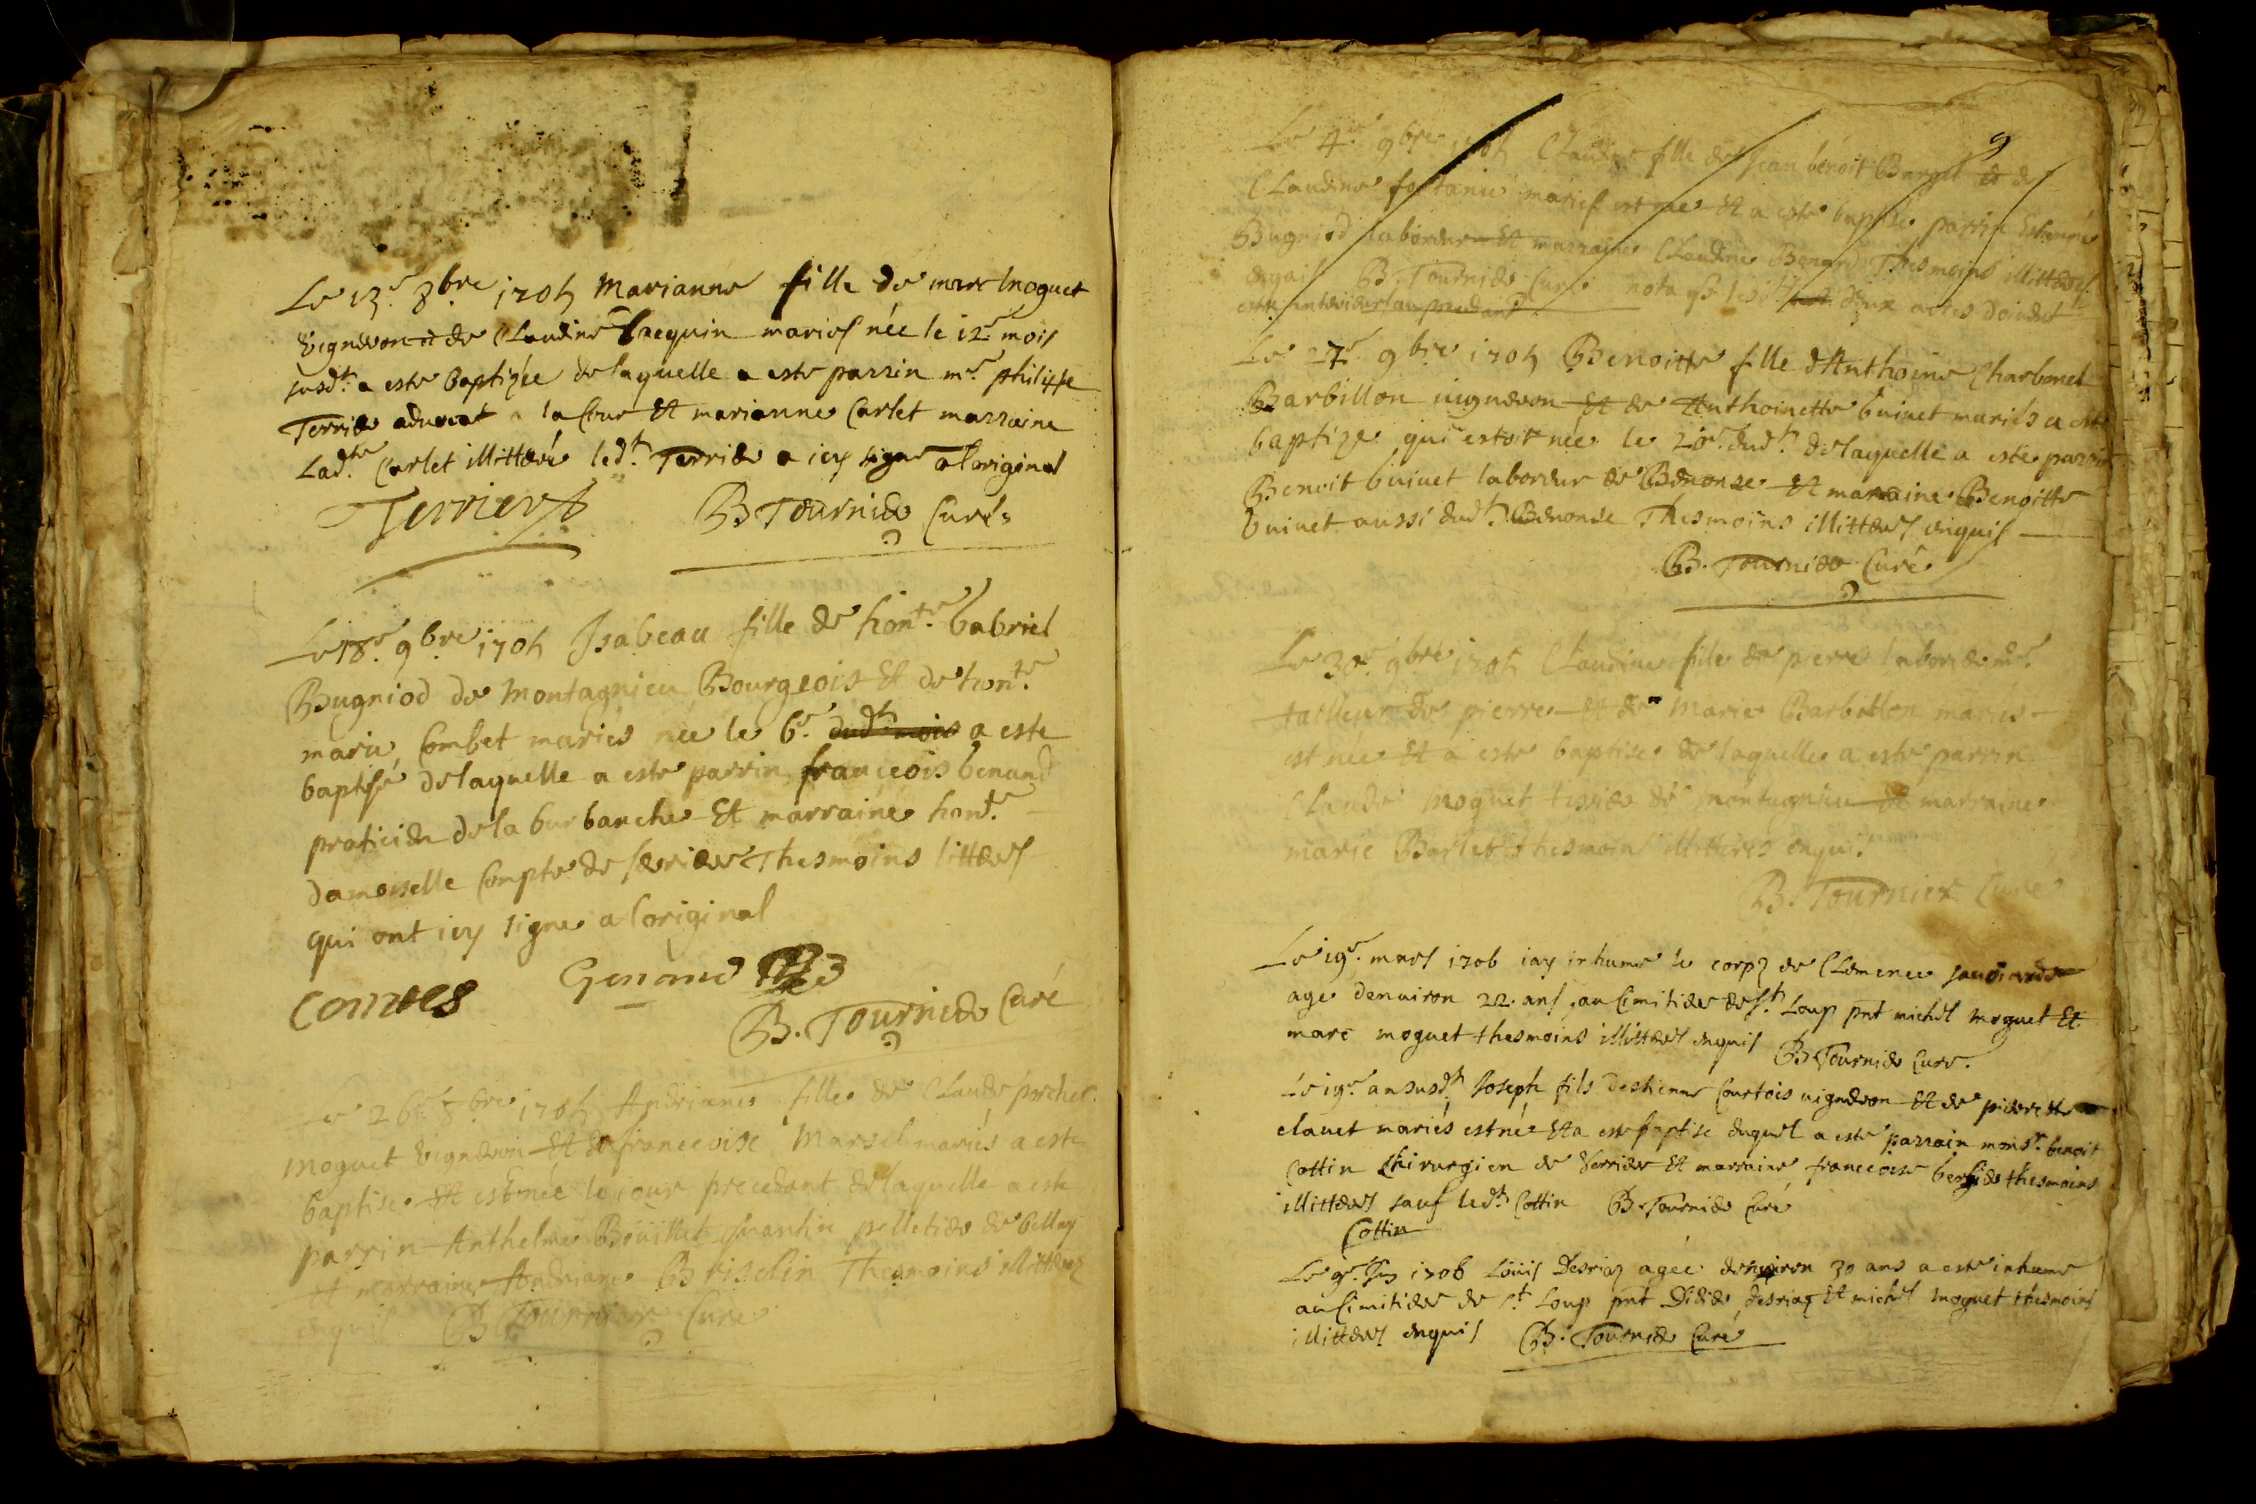 Le 13e 8bre 1705 Marianne fille de marc moguet
vigneron et de Claudine Jacquin mariés née le 12e mois
susdt a este baptizée de laquelle a este parrin mr philippe
Terrier advocat a la Cour Et marianne Carlet marraine
Ladte Carlet illitterée ledt Terrier a icy signe a l'original
Terrier B Tournier Curé
Le 18e 9bre 1705 Isabeau fille de honte Gabriel
Bugniod de Montagnieu Bourgeois Et de honte
marie Combet mariés née le 6e dudt mois a este
baptisé de laquelle a este parrin franceois Genand
praticien de la burbanche Et marraine honte
damoiselle Compte de serrieres Thesmoins litterés
qui ont icy signe a l'original
Comtes Genand
B. Tournier Curé
Le 26e 1705 Andriane fille de Claude
moguet vigneron Et de franceoise Marsel mariés a este
baptise Et est née le jour precedant de laquelle a este
parrin Anthelme Boüillet pelletier de belley
Et marraine Andriane Brisselin Thesmoins illitterez
enquis B Tournier Curé
9
Le 4e 9bre 1705 Claudine fille de Jean benoit et de
Claudine mariés est née Et a este baptise parrin Estienne
Bugniod laboureur Et marraine Claudine Benand Thesmoins illitterés
enquis B. Tournier Curé nota que les deux actes doivent
estre anterieurs au precedant
Le 27e 9bre 1705 Benoitte fille d'Anthoine Charbonet
Barbillon vigneron Et de Anthoinette buivet mariés a este
baptize qui estoit née le 20e dudt de laquelle a este parrin
Benoit buivet laboreur de Benonce Et marraine Benoitte
buivet aussi dudt Benonse Thesmoins illitterés enquis
B. Tournier Curé
Le 30e 9bre 1705 Claudine fille de pierre mre
tailleur de pierre et de Marie Barbillon mariés
est née Et a este baptise de laquelle a este parrin
Claude Moguet de montagnieu et marraine
marie Barlet thesmoins illitterés enquis
B. Tournier Curé
Le 19e mars 1706 iay inhumé le corpz de Clemence
age denviron 22 ans au cimitiere de st Loup pnt michel moguet Et
marc moguet thesmoins illitterés enquis B Tournier Curé.
Le 19e an susdt Joseph fils d'estienne Courtois vigneron Et de pierrette
clavet mariés est né Et a este baptise duquel a este parrain monsr benoit
Cottin Chirurgien de Serrieres Et marraine franceoise bergier thesmoins
illitterés sauf ledt Cottin B. Tournier Curé
Cottin
Le 9e 1706 Loüis Desriaz agée denviron 30 ans a este inhumé
au Cimitiere de st Loup pnt Didier desriaz Et michel moguet thesmoins
illitterés enquis B. Tournier Curé